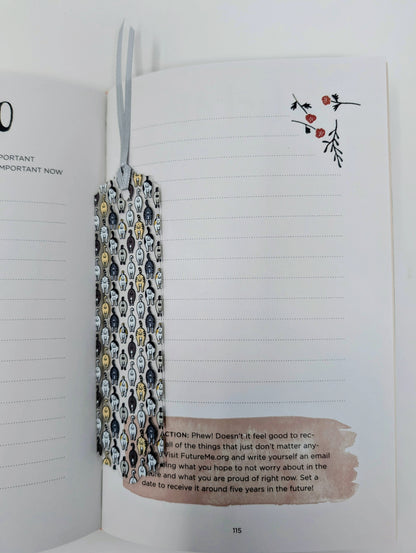 0
PORTANT
MPORTANT NOW
CTION: Phew! Doesn't it feel good to rec-
all of the things that just don't matter any-
Visit FutureMe.org and write yourself an email
ing what you hope to not worry about in the
re and what you are proud of right now. Set a
date to receive it around five years in the future!
115